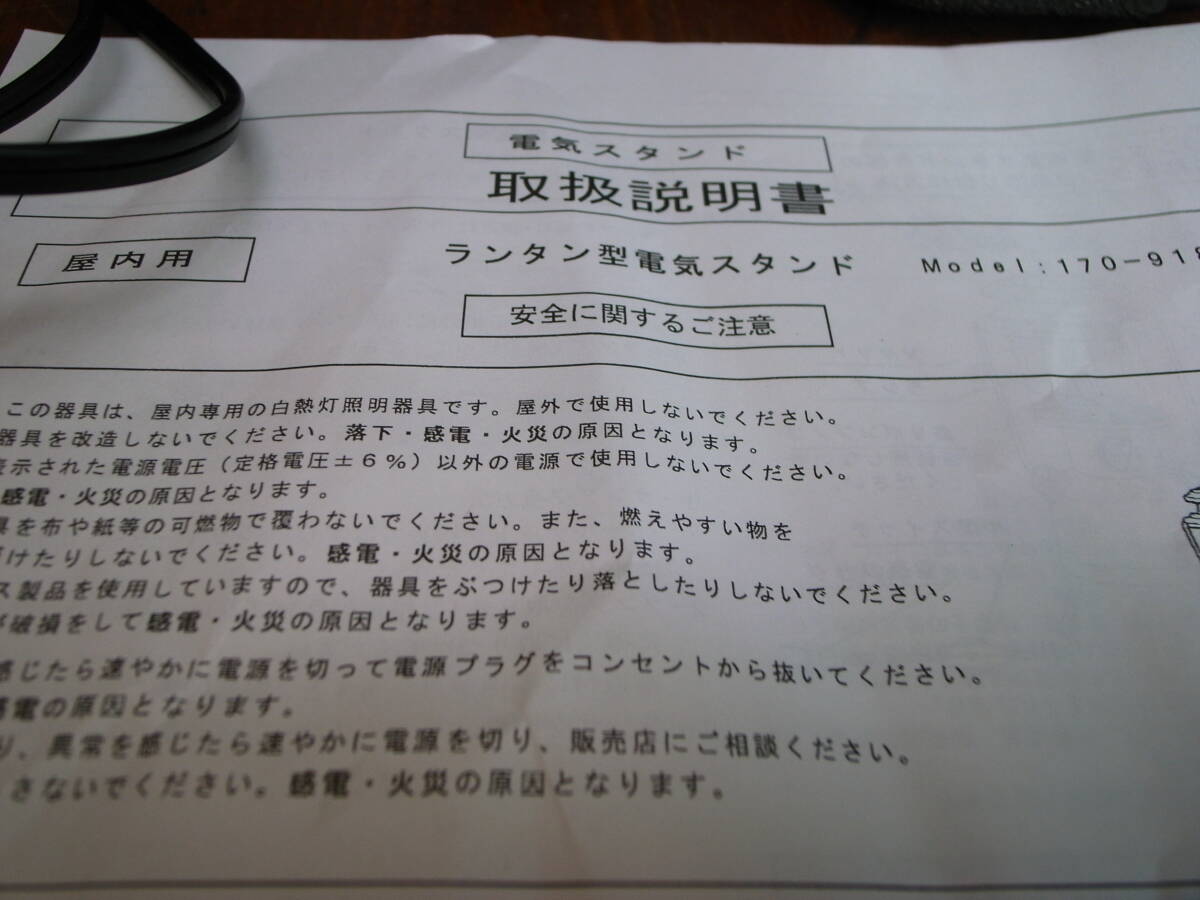 電気スタンド
取扱説明書
屋内用
ランタン型電気スタンド Model:170-918
安全に関するご注意
この器具は、屋内専用の白熱灯照明器具です。屋外で使用しないでください。
器具を改造しないでください。落下・感電・火災の原因となります。
表示された電源電圧（定格電圧±6％）以外の電源で使用しないでください。
感電・火災の原因となります。
具を布や紙等の可燃物で覆わないでください。また、燃えやすい物を
けたりしないでください。感電・火災の原因となります。
ス製品を使用していますので、器具をぶつけたり落としたりしないでください。
破損をして感電・火災の原因となります。
感じたら速やかに電源を切って電源プラグをコンセントから抜いてください。
感電の原因となります。
り、異常を感じたら速やかに電源を切り、販売店にご相談ください。
さないでください。感電・火災の原因となります。